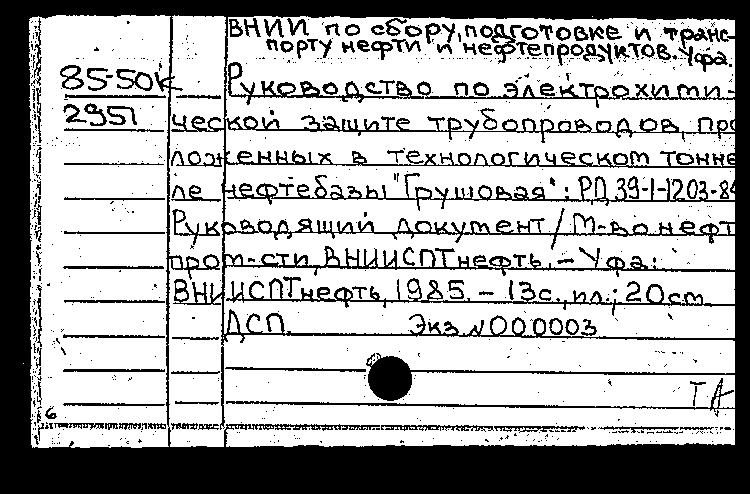 ВНИИ по сбору, подготовке и транс-
порту нефти и нефтепродуктов. Уфа.
85-50к Руководство по электрохими-
2951 ческой защите трубопроводов, про
ложенных в технологическом тонне
ле нефтебазы "Грушовая": РД 39-1-1203-84
Руководящий документ / М-во нефт
пром-сти, ВНИИСПТнефть. - Уфа:
ВНИИСПТнефть, 1985. - 13с., ил.; 20см.
ДСП. Экз. №000003
ТА
6